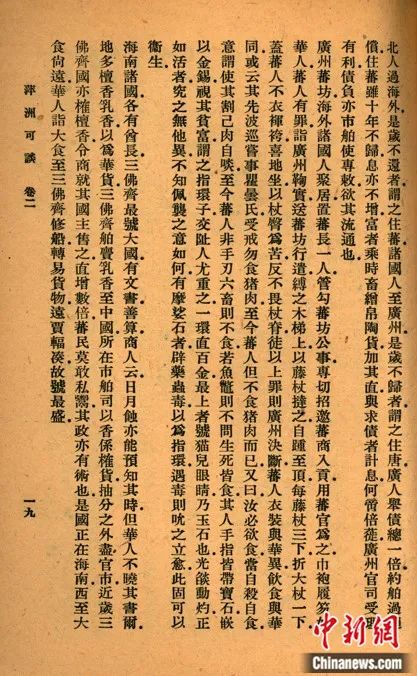 北人過海外是歲不還者謂之住蕃諸國人至廣州是歲不歸者謂之住唐廣人舉債總一倍約舶過
償住蕃雖十年不歸息亦不增富者乘時畜繒帛陶貨加其直與求債者計息何啻倍蓰廣州官司受理
有利債負亦市舶使專敕欲其流通也
廣州蕃坊海外諸國人聚居置蕃長一人管勾蕃坊公事專切招邀蕃商入貢用蕃官爲之巾袍履笏如
華人蕃人有罪詣廣州鞫實送蕃坊行遣縛之木梯上以藤杖撻之自踵至頂每藤杖三下折大杖一下
蓋蕃人不衣褌袴喜地坐以杖臀爲苦反不畏杖脊徒以上罪則廣州決斷蕃人衣裝與華異飲食與華
同或云其先波巡嘗事瞿曇氏受戒勿食猪肉至今蕃人但不食猪肉而已又曰汝必欲食當自殺自食
意謂使其割己肉自啖至今蕃人非手刃六畜則不食若魚鼈則不問生死皆食其人手指皆帶寶石嵌
以金錫視其貧富謂之指環子交阯人尤重之一環直百金最上者號猫兒眼睛乃玉石也光燄動灼正
如活者究之無他異不知佩襲之意如何有摩娑石者辟藥蟲毒以爲指環遇毒則吮之立愈此固可以
衞生
海南諸國各有酋長三佛齊最號大國有文書善算商人云日月蝕亦能預知其時但華人不曉其書爾
地多檀香乳香以爲華貨三佛齊舶賫乳香至中國所在市舶司以香係榷貨抽分之外盡官市近歲三
佛齊國亦榷檀香令商就其國主售之直增數倍蕃民莫敢私鬻其政亦有術也是國正在海南西至大
食尚遠華人詣大食至三佛齊修船轉易貨物遠賈輻湊故號最盛
萍洲可談 卷二
一九
中新網
Chinanews.com